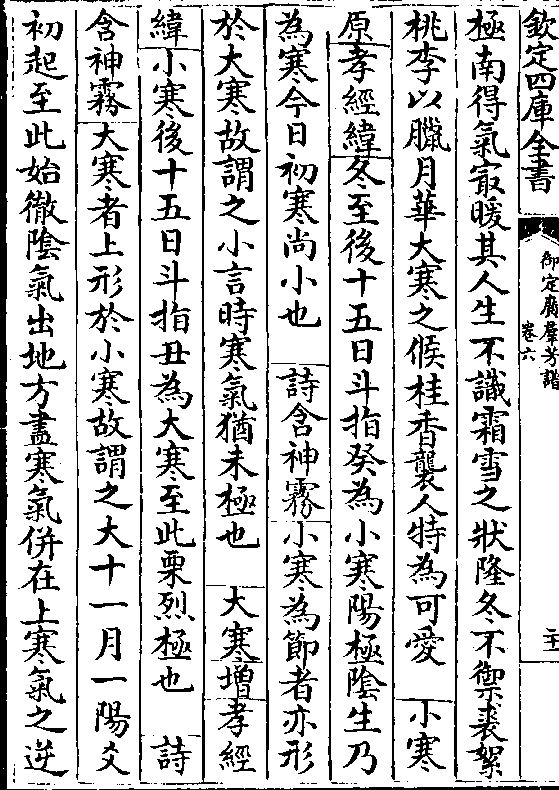 欽定四庫全書
御定廣羣芳譜
卷六
極南得氣㝡暖其人生不識霜雪之狀隆冬不禦裘絮
桃李以臘月華大寒之候桂香襲人特為可愛 小寒
原孝經緯冬至後十五日斗指癸為小寒陽極陰生乃
為寒今日初寒尚小也 詩含神霧小寒為節者亦形
於大寒故謂之小言時寒氣猶未極也 大寒增孝經
緯小寒後十五日斗指丑為大寒至此栗烈極也 詩
含神霧大寒者上形於小寒故謂之大十一月一陽爻
初起至此始徹陰氣出地方盡寒氣併在上寒氣之逆